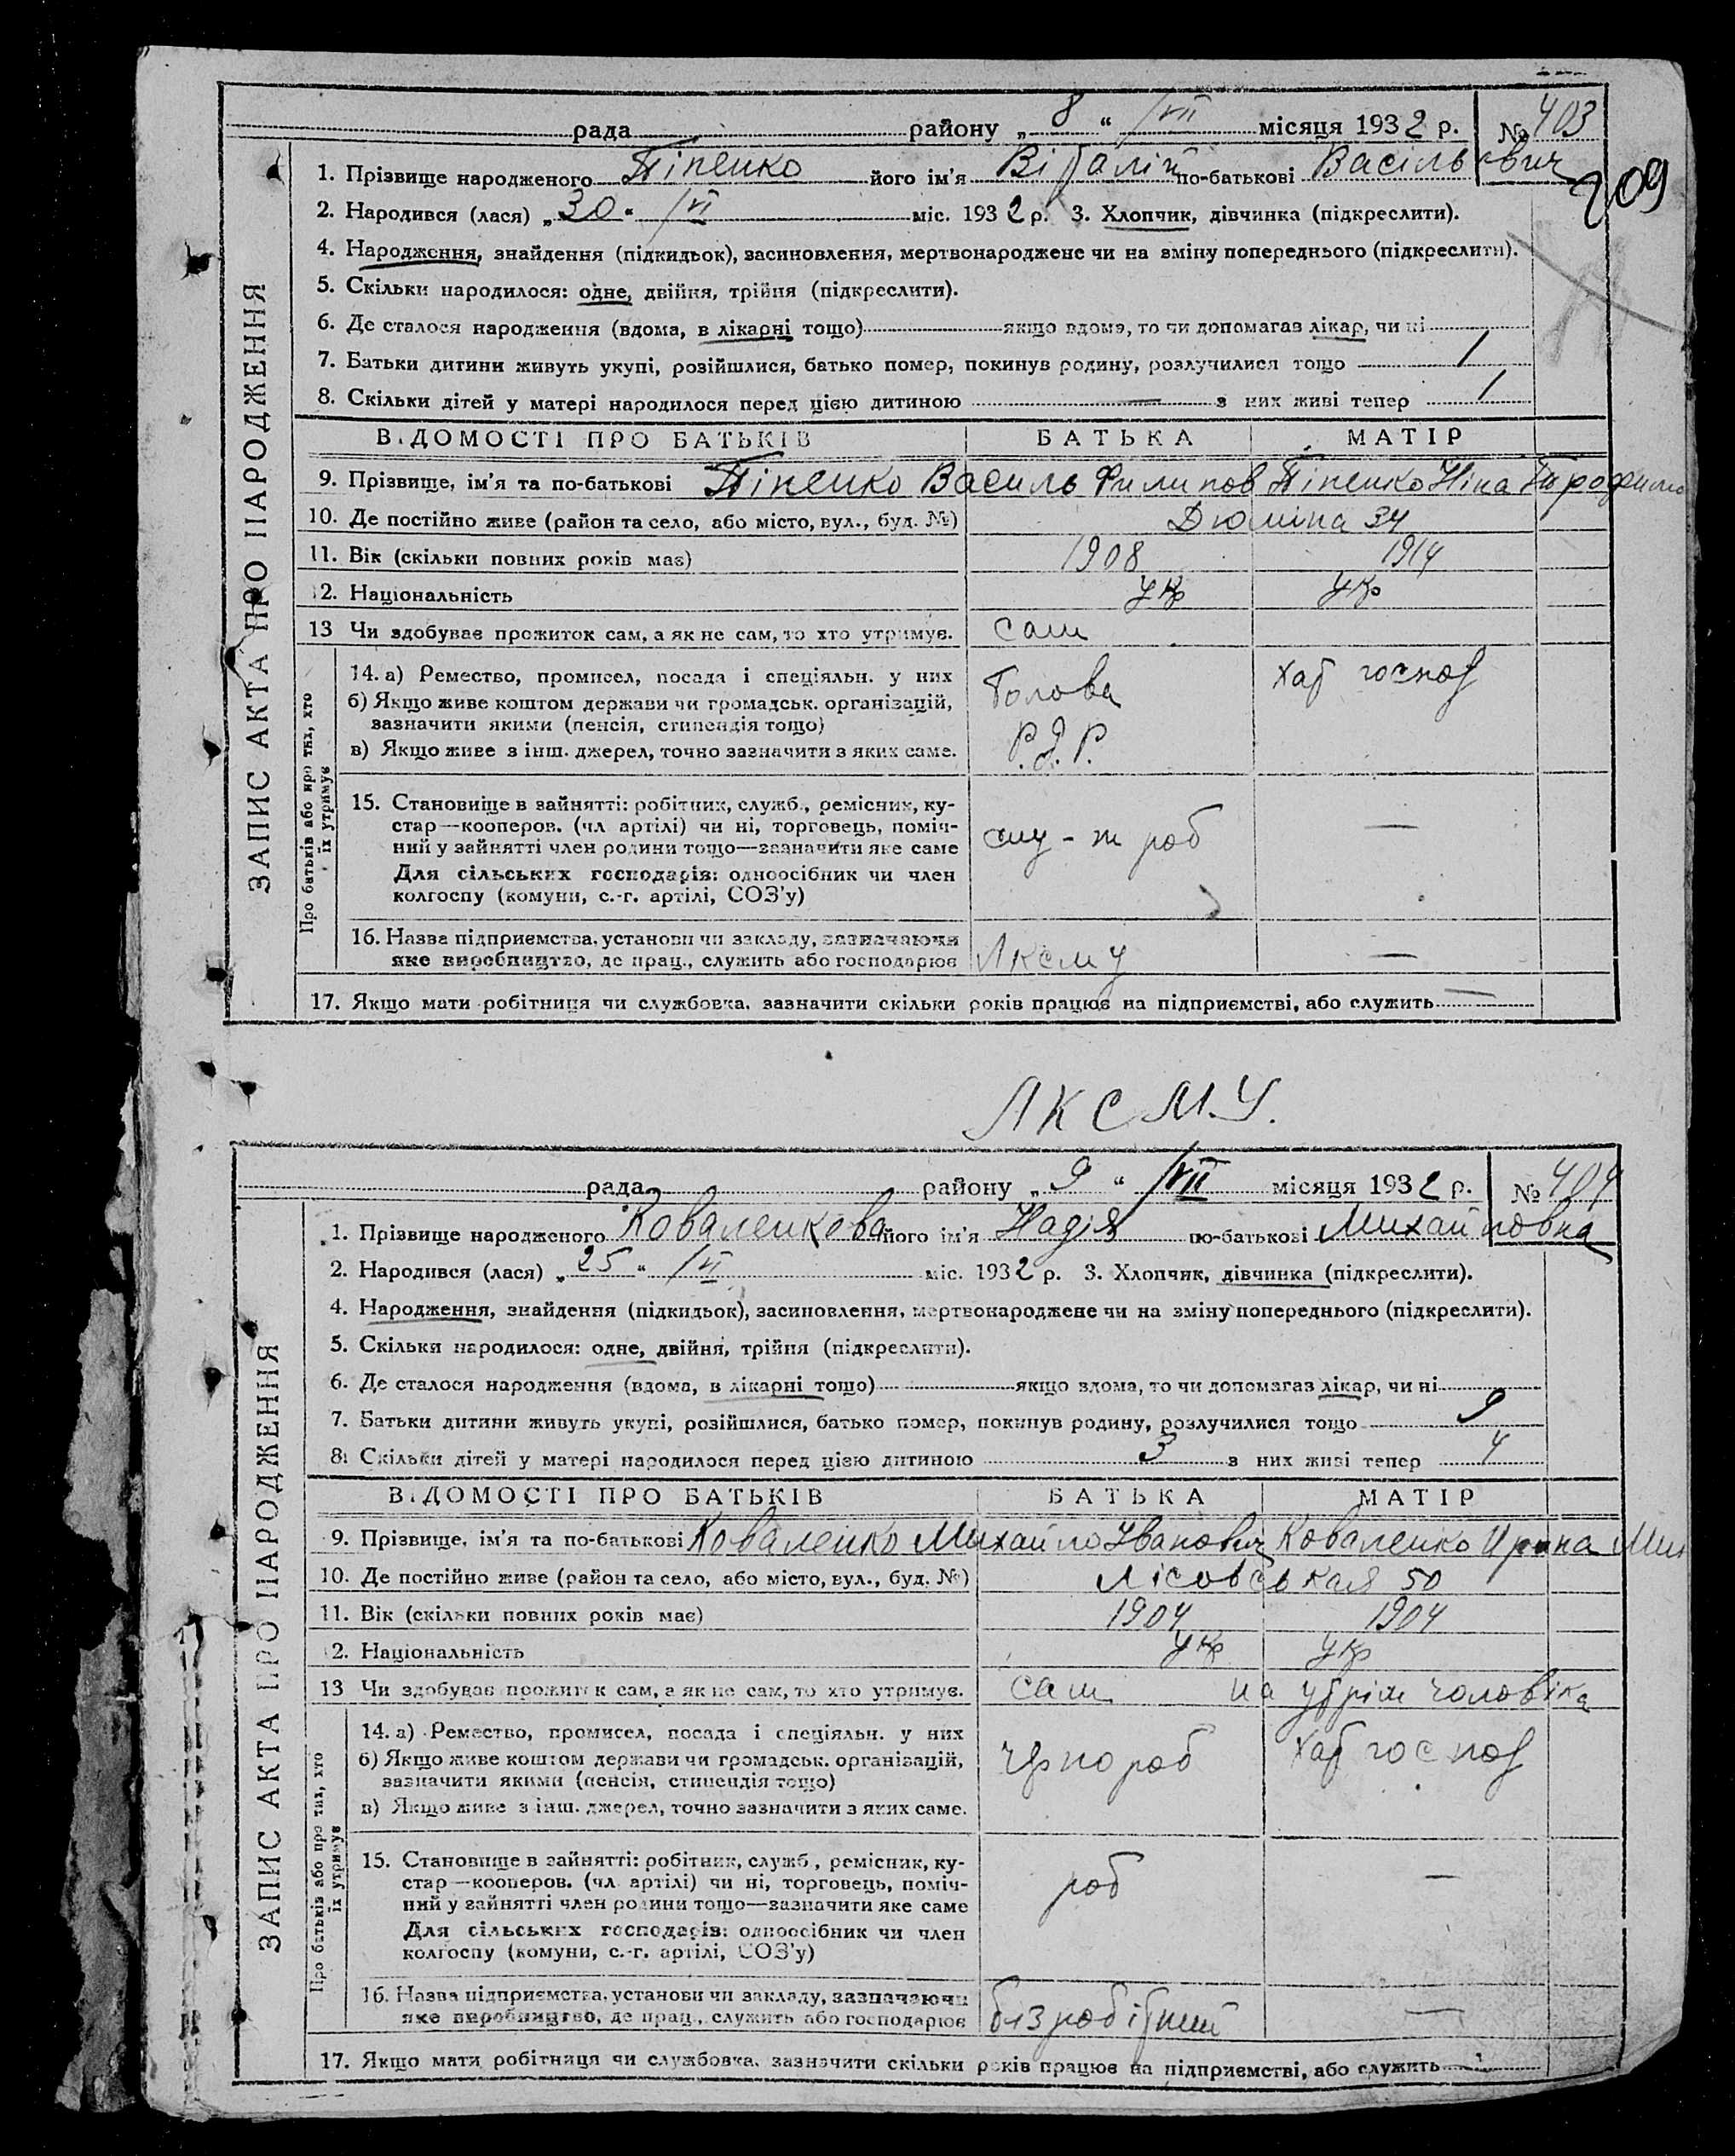 рада района „ 8 “ /VII місяця 1932 р. № 403
1. Прізвище народженого Піпенко його ім'я Віталій по-батькові Васільєвич
209
2. Народився (лася) „ 30 “ /VI міс. 1932 р. 3. Хлопчик, дівчинка (підкреслити).
4. Народження, знайдення (підкидьок), засиновлення, мертвонароджене чи на зміну попереднього (підкреслити).
5. Скільки народилося: одне, двійня, трійня (підкреслити).
6. Де сталося народження (вдома, в лікарні тощо) якщо вдома, то чи допомагав лікар, чи ні
7. Батьки дитини живуть укупі, розійшлися, батько помер, покинув родину, розлучилися тощо 1
8. Скільки дітей у матері народилося перед цією дитиною — з них живі тепер 1
ВІДОМОСТІ ПРО БАТЬКІВ БАТЬКА МАТІР
9. Прізвище, ім'я та по-батькові Піпенко Василь Филипов Піпенко Ніна Трофимо
10. Де постійно живе (район та село, або місто, вул., буд. №) Дюміна 34
11. Вік (скільки повних років має) 1908 1914
12. Національність Укр Укр
13 Чи здобуває прожиток сам, а як не сам, то хто утримує. сам
ЗАПИС АКТА ПРО НАРОДЖЕННЯ
Про батьків або про тих, хто їх утримує
14. а) Ремество, промисел, посада і спеціяльн. у них Голова хат господ
б) Якщо живе коштом держави чи громадськ. організацій,
зазначити якими (пенсія, стипендія тощо)
в) Якщо живе з інш. джерел, точно зазначити з яких саме.
15. Становище в зайнятті: робітник, служб., ремісник, ку-
стар—кооперов. (чл артілі) чи ні, торговець, поміч-
ний у зайнятті член родини тощо—зазначити яке саме роб —
Для сільських господарів: одноосібник чи член
колгоспу (комуни, с.-г. артілі, СОЗ'у)
16. Назва підприємства, установи чи закладу, зазначаючи
яке виробництво, де прац., служить або господарює ЛКСМУ —
17. Якщо мати робітниця чи службовка, зазначити скільки років працює на підприємстві, або служить —
ЛКСМ.У.
рада району „ 9 “ /VII місяця 1932 р. № 404
1. Прізвище народженого Коваленкова його ім'я Надія по-батькові Михайловна
2. Народився (лася) „ 25 “ /VI міс. 1932 р. 3. Хлопчик, дівчинка (підкреслити).
4. Народження, знайдення (підкидьок), засиновлення, мертвонароджене чи на зміну попереднього (підкреслити).
5. Скільки народилося: одне, двійня, трійня (підкреслити).
6. Де сталося народження (вдома, в лікарні тощо) якщо вдома, то чи допомагав лікар, чи ні
7. Батьки дитини живуть укупі, розійшлися, батько помер, покинув родину, розлучилися тощо 9
8. Скільки дітей у матері народилося перед цією дитиною 3 з них живі тепер 4
ВІДОМОСТІ ПРО БАТЬКІВ БАТЬКА МАТІР
9. Прізвище, ім'я та по-батькові Коваленко Михайло Іванович Коваленко Ирина Мих
10. Де постійно живе (район та село, або місто, вул., буд. №) Лісовськая 50
11. Вік (скільки повних років має) 1904 1904
12. Національність Укр Укр
13 Чи здобуває прожиток сам, а як не сам, то хто утримує. сам на утрім чоловіка
ЗАПИС АКТА ПРО НАРОДЖЕННЯ
Про батьків або про тих, хто їх утримує
14. а) Ремество, промисел, посада і спеціяльн. у них чрнороб хат господ
б) Якщо живе коштом держави чи громадськ. організацій,
зазначити якими (пенсія, стипендія тощо)
в) Якщо живе з інш. джерел, точно зазначити з яких саме.
15. Становище в зайнятті: робітник, служб., ремісник, ку-
стар—кооперов. (чл артілі) чи ні, торговець, поміч-
ний у зайнятті член родини тощо—зазначити яке саме роб —
Для сільських господарів: одноосібник чи член
колгоспу (комуни, с.-г. артілі, СОЗ'у)
16. Назва підприємства, установи чи закладу, зазначаючи
яке виробництво, де прац., служить або господарює безробітний —
17. Якщо мати робітниця чи службовка, зазначити скільки років працює на підприємстві, або служить